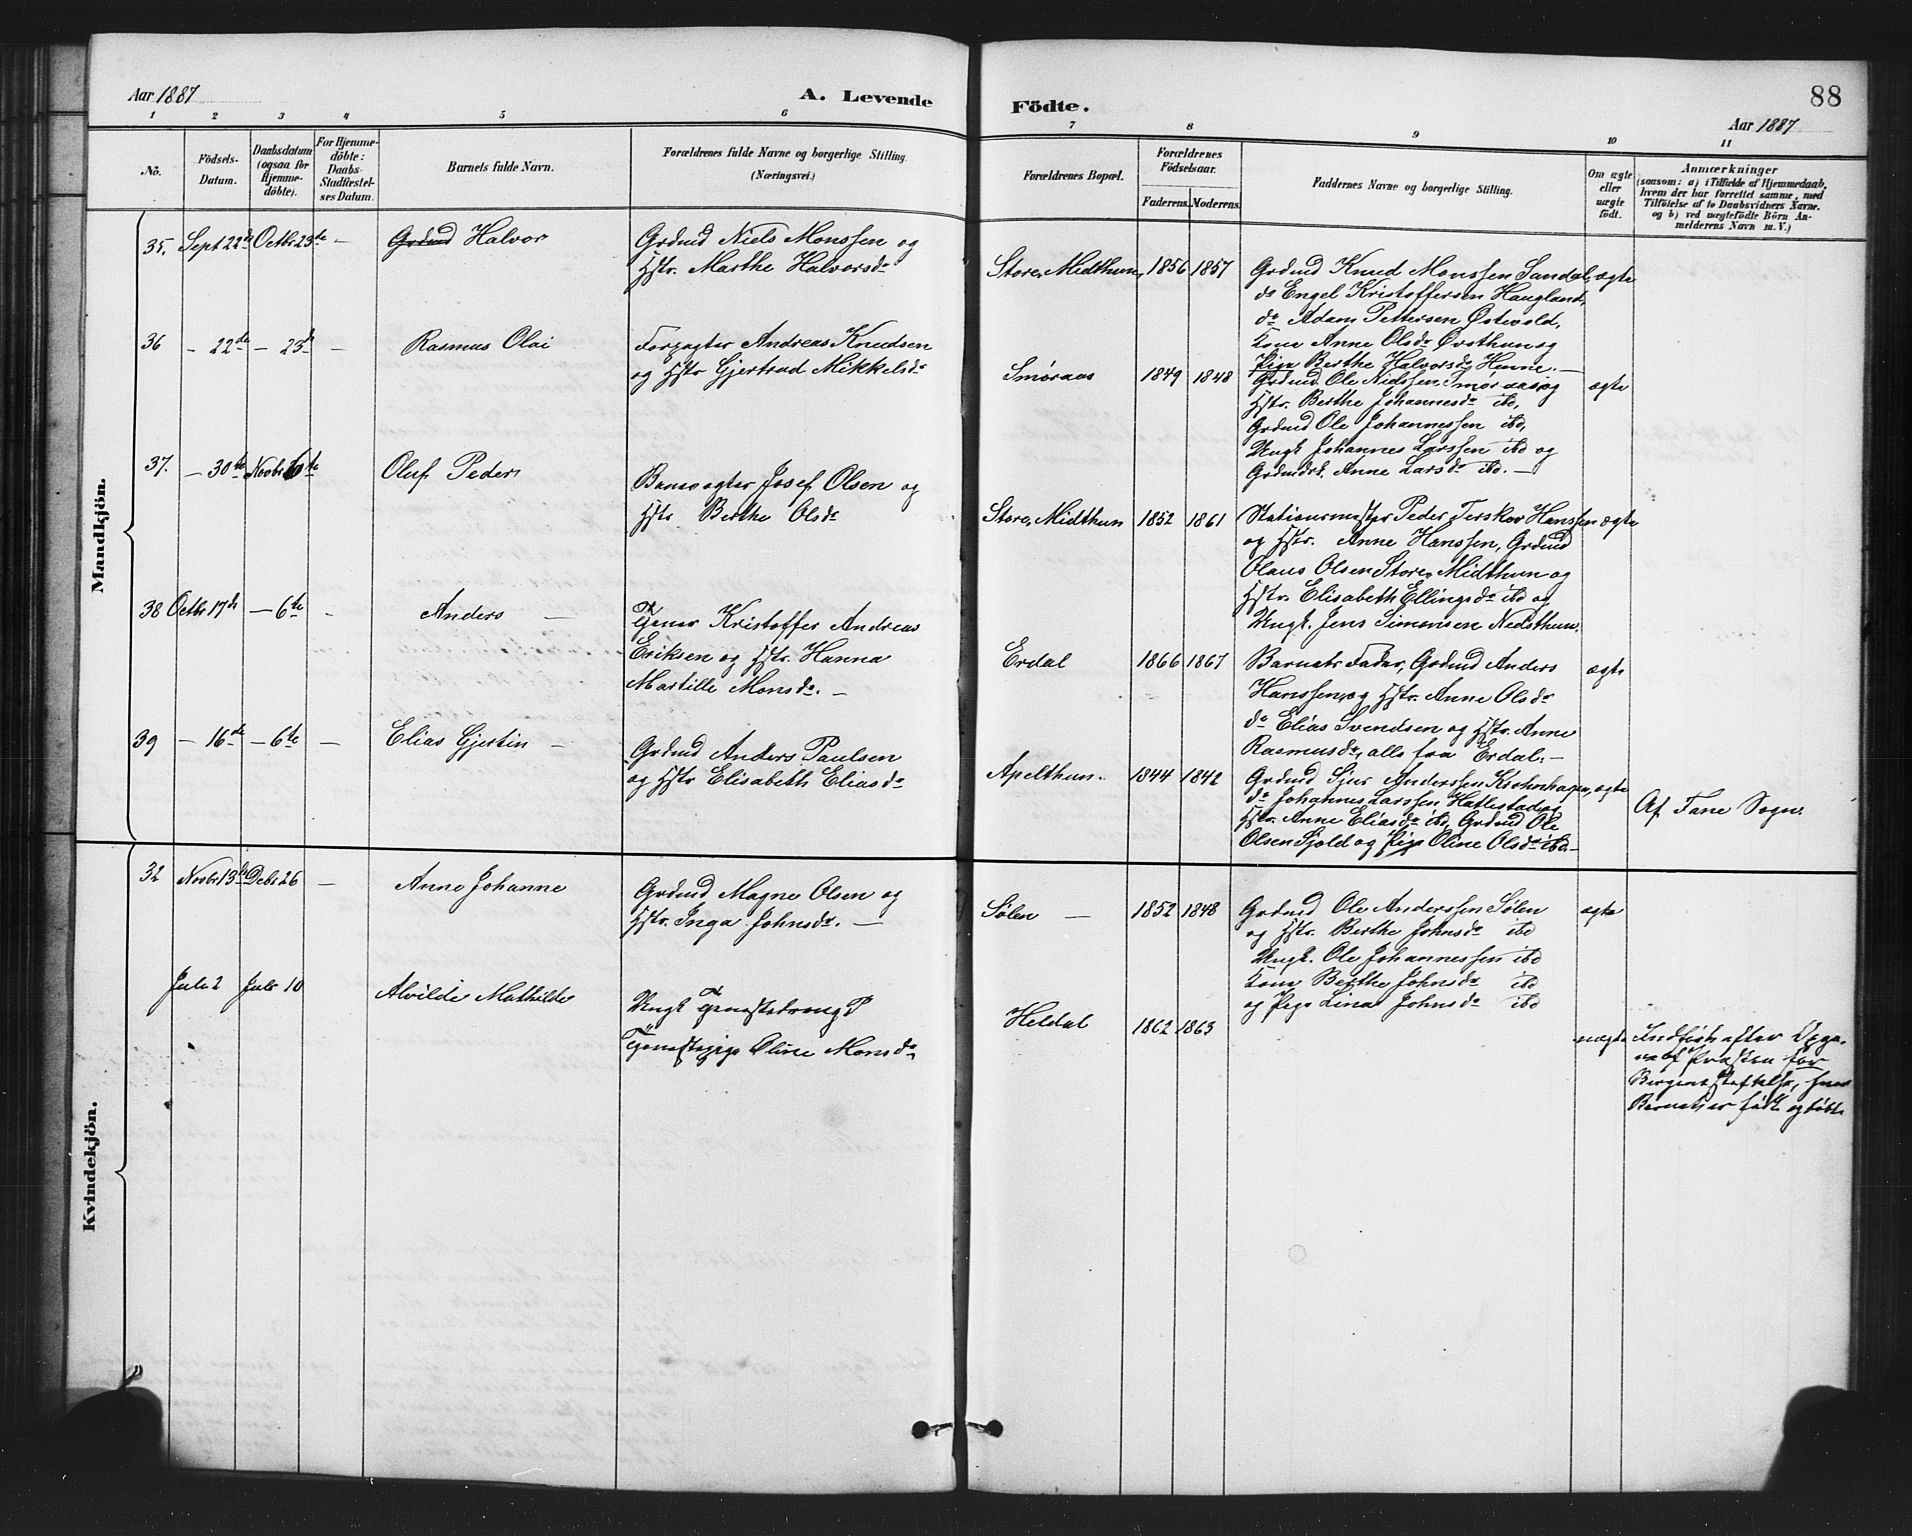 Aar 1887
A. Levende
Födte.
88
Aar 1887
1 2 3 4 5 6 7 8 9 10 11
No.
Födsels-Datum.
Daabsdatum (ogsaa for Hjemme-döbte).
For Hjemme-döbte: Daabs-Stadfæstel-ses Datum.
Barnets fulde Navn.
Forældrenes fulde Navne og borgerlige Stilling.
(Næringsvei.)
Forældrenes Bopæl.
Forældrenes Födselsaar.
Faderens. Moderens.
Faddernes Navne og borgerlige Stilling.
Om ægte eller uægte födt.
Anmærkninger
(saasom: a) i Tilfælde af Hjemmedaab,
hvem der har forrettet samme, med
Tilföielse af to Daabsvidners Navne.
og b) ved uægtefödte Börn An-
melderens Navn m. V.)
Mandkjön.
35. Sept 22de Octbr 23de — Grdmd Halvor
Grdmd Niels Monssen og
Hstr. Marthe Halvorsdr
Store Midthun, 1856 1857
Grdmd Knud Monssen Sandal, ægte
do Engel Kristoffersen Haugland,
do Adam Pettersen Østevold,
Kone Anne Olsdr Øvsthun og
Pige Berthe Halvorsdr Henne. —
36 — 22de — 23de — Rasmus Olai
Forpagter Andreas Knudsen
og Hstr Gjertrud Mikkelsdr
Smøraas 1849 1848
Grdmd Ole Nielssen Smøraas og ægte
Hstr. Berthe Johannesdr ibd,
Grdmd Ole Johannessen ibd,
Ungk. Johannes Larssen ibd og
Grdmdsk. Anne Larsdr ibd. —
37. — 30te Novbr 6te Oluf Peder
Banevogter Josef Olsen og
Hstr Berthe Olsdr
Store Midthun 1852 1861
Stationsmester Peder Terskov Hanssen ægte
og Hstr. Anne Hanssen, Grdmd
Olaus Olsen Store Midthun og
Hstr. Elisabeth Ellingsdr ibd og
Ungk. Jens Simonsen Nedsthun.
38 Octbr 17de — 6te — Anders —
Tjener Kristoffer Andreas
Eriksen og Hstr. Hanna
Martille Monsdr. —
Erdal 1866 1867
Barnets Fader, Grdmd Anders ægte
Hanssen, og Hstr. Anne Olsdr
do Elias Svendsen og Hstr. Anne
Rasmusdr, alle fra Erdal. —
39 — 16de — 6te — Elias Gjertin —
Grdmd Anders Paulsen
og Hstr Elisabeth Eliasdr
Apelthun. 1844 1842
Grdmd Sjur Anderssen Krohnhagen, ægte
do Johannes Larssen Hatlestad og
Hstr. Anne Eliasdr ibd, Grdmd Ole
Olsen Sjold og Pige Oline Olsdr ibd. —
Af Fane Sogn.
Kvindekjön.
32 Novbr 13de Debr 26 — Anne Johanne
Grdmd Magne Olsen og
Hstr. Inga Johnsdr. —
Sølen — 1852 1848
Grdmd Ole Anderssen Sølen ægte
og Hstr. Berthe Johnsdr ibd
Ungk. Ole Johannessen ibd
Kone Berthe Johnsdr ibd
og Pige Lina Johnsdr ibd
Juli 2 Juli 10 Alvilde Mathilde
Ungk Tjenestedreng P
Tjenestepige Oline Monsdr
Heldal 1862 1863
uægte
Indført efter Opga-
ve af Præsten for
Bergens Stiftelse, hvor
Barnet er født og døbt.